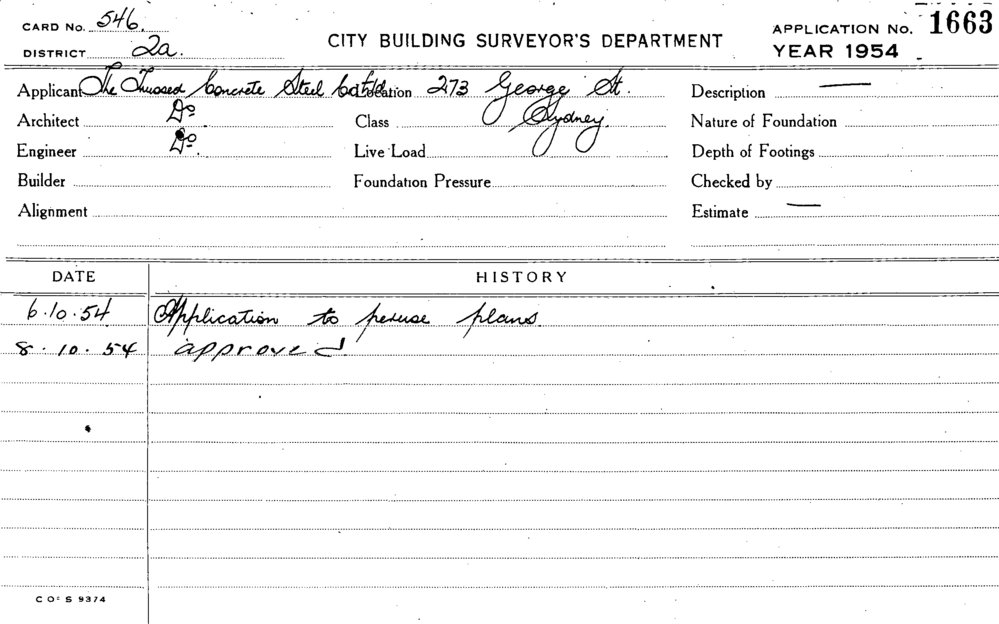 CARD No. 546.
DISTRICT 2a.
CITY BUILDING SURVEYOR'S DEPARTMENT
APPLICATION No. 1663
YEAR 1954
Applicant The Trussed Concrete Steel Co Ltd. Location 273 George St. Sydney. Description —
Architect Do Class Nature of Foundation
Engineer Do. Live Load Depth of Footings
Builder Foundation Pressure Checked by
Alignment Estimate —
DATE HISTORY
6.10.54 Application to peruse plans.
8.10.54 approved.
C OF S 9374